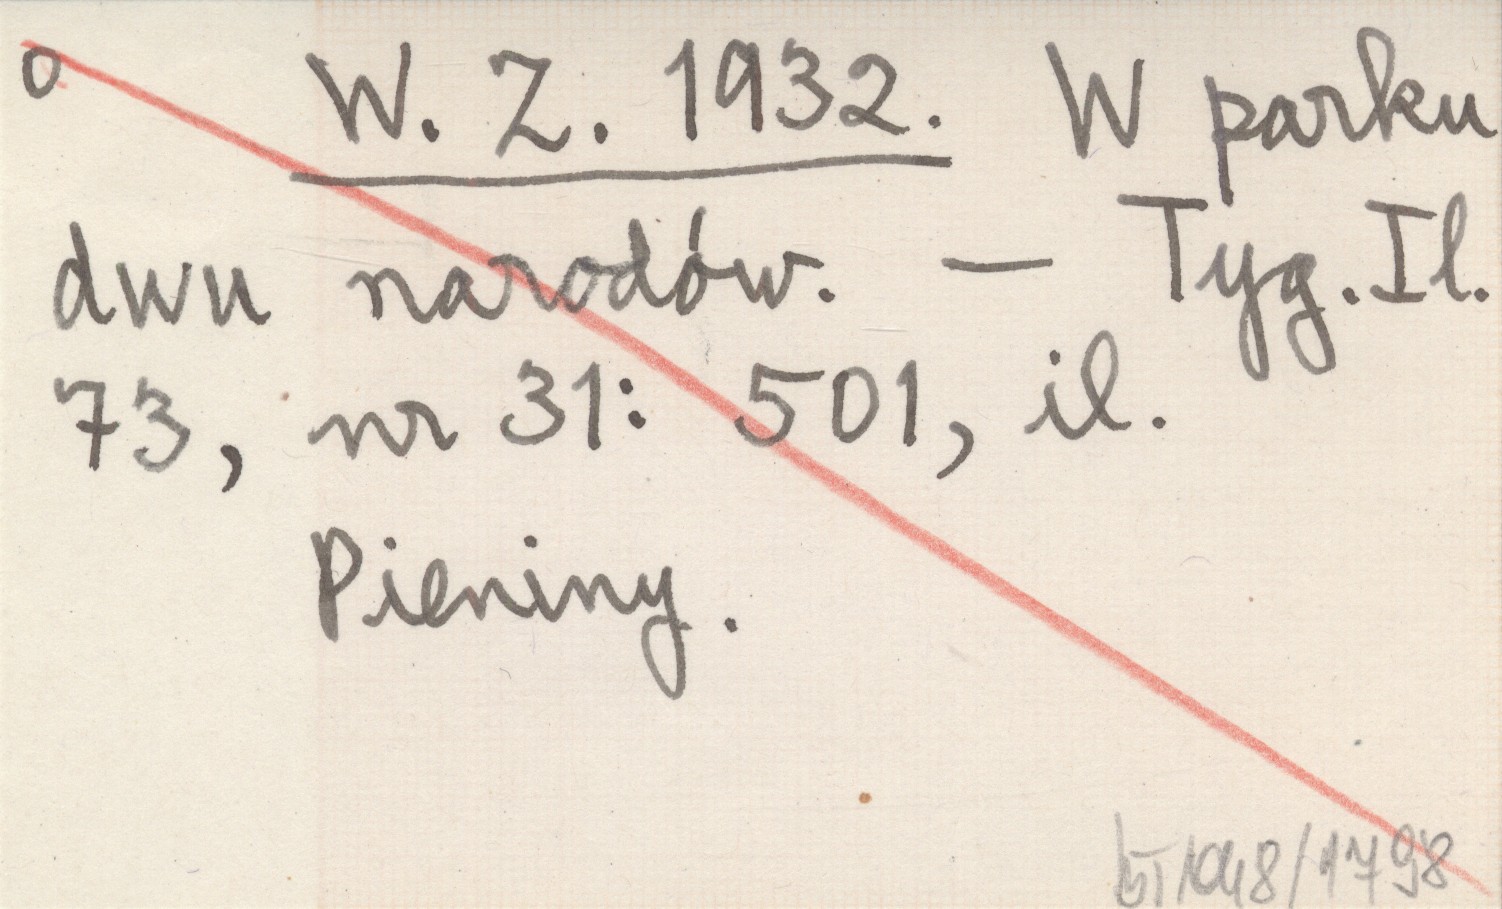 o W. Z. 1932. W parku
dwu narodów. — Tyg. Il.
73, nr 31: 501, il.
Pieniny.
/1798